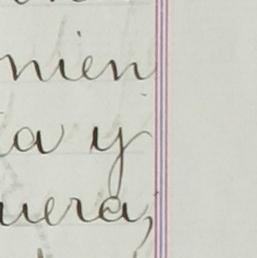 mien
ta y
uera,